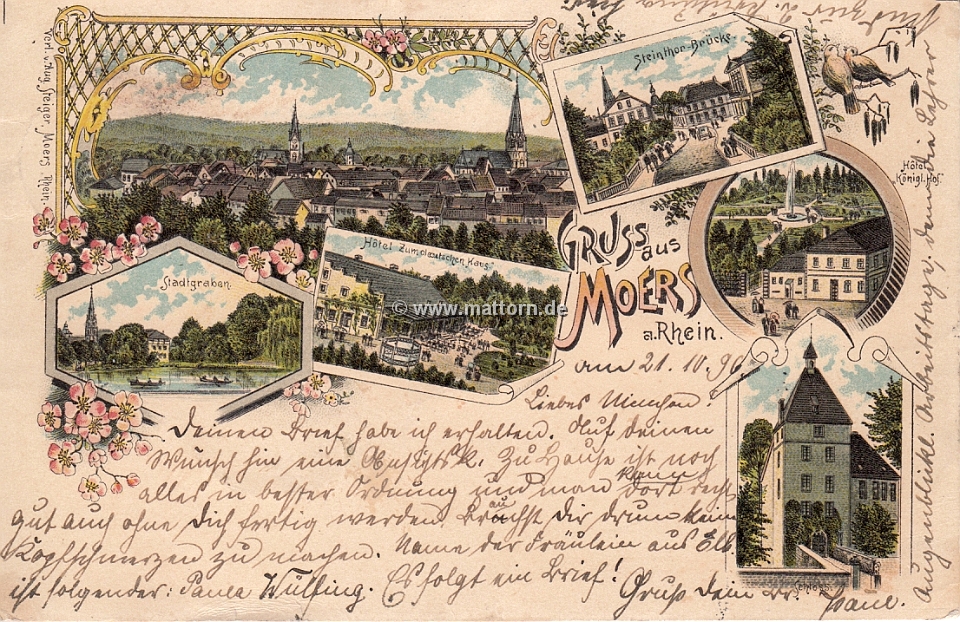 Verl. v. Aug. Steiger Moers Rhein.
Steinthor-Brücke
Hôtel
Königl. Hof.
Stadtgraben.
Hôtel Zum deutschen Kaiser
© www.mattorn.de
GRUSS aus
MOERS
a. Rhein.
Schloss.
am 21.10.96
Liebes Minchen!
Deinen Brief habe ich erhalten. Auf deinen
Wunsch hin eine Ansigtsk. Zu Hause ist noch
alles in bester Ordnung und man kann dort recht
gut auch ohne Dich fertig werden. Brauchst Dir drum kein
Kopfschmerzen zu machen. Name der Fräulein aus Elb.
ist folgender: Paula Wülfing. Es folgt ein Brief!
Gruß Dein Br.
Augenblickl. Arbeitstage, denn die Lehrer
sind zur